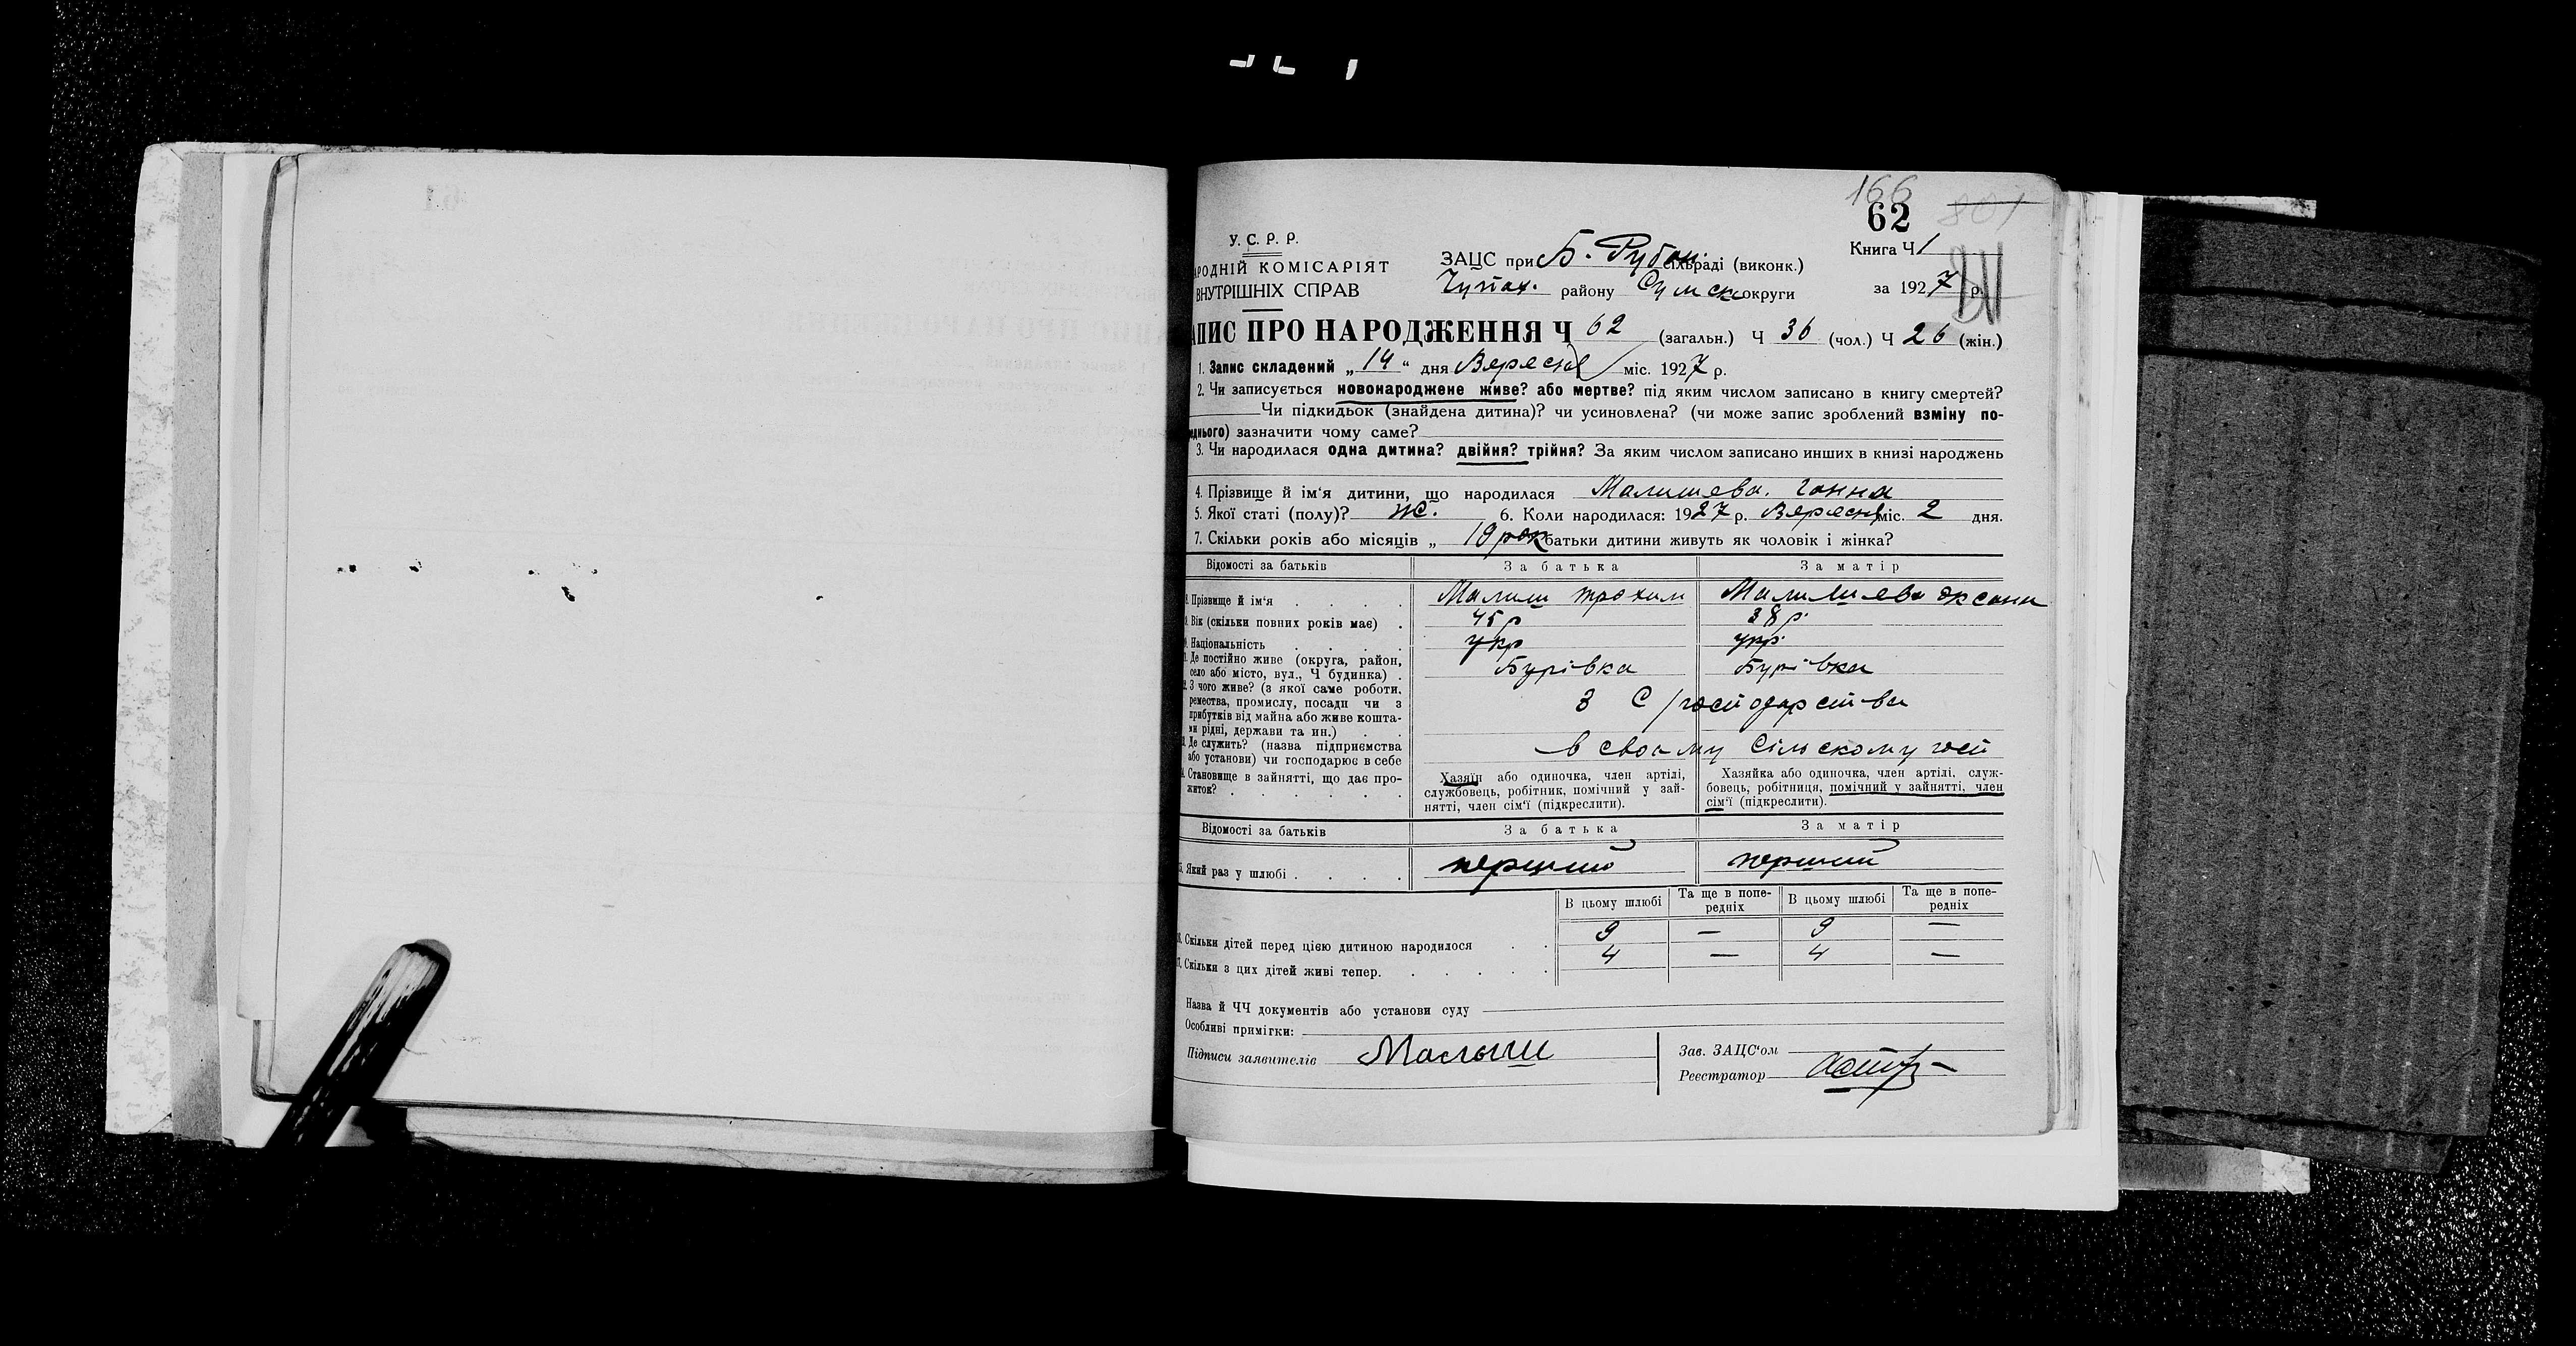 166
62 801
У. С. Р. Р.
РОДНІЙ КОМІСАРІЯТ
ВНУТРІШНІХ СПРАВ
ЗАЦС при Б. Рубан. сільраді (виконк.)
Чупах. району Сумск округи
Книга Ч 1
за 1927 р.
АПИС ПРО НАРОДЖЕННЯ Ч 62 (загальн.) Ч 36 (чол.) Ч 26 (жін.)
1. Запис складений „14“ дня Вересня міс. 1927 р.
2. Чи записується новонароджене живе? або мертве? під яким числом записано в книгу смертей?
Чи підкидьок (знайдена дитина)? чи усиновлена? (чи може запис зроблений взміну по-
еднього) зазначити чому саме?
3. Чи народилася одна дитина? двійня? трійня? За яким числом записано инших в книзі народжень
4. Прізвище й ім‘я дитини, що народилася Малишева. Ганна
5. Якої статі (полу)? Ж. 6. Коли народилася: 1927 р. Вересня міс. 2 дня.
7. Скільки років або місяців „ 19 рок батьки дитини живуть як чоловік і жінка?
Відомості за батьків За батька За матір
8. Прізвище й ім‘я . . . . Малиш Трохим Малишева Оксана
9. Вік (скільки повних років має) . 45 р 38 р.
Національність . . . . укр укр.
Де постійно живе (округа, район,
село або місто, вул., Ч будинка) . Бурівка Бурівка
2. З чого живе? (з якої саме роботи,
ремества, промислу, посади чи з
прибутків від майна або живе кошта-
ми рідні, держави та ин.) . . З С/господарства
Де служить? (назва підприємства
або установи) чи господарює в себе в своєму Сільскому госп
Становище в зайнятті, що дає про-
житок? . . . . . .
Хазяїн або одиночка, член артілі,
службовець, робітник, помічний у зай-
нятті, член сім‘ї (підкреслити).
Хазяйка або одиночка, член артілі, служ-
бовець, робітниця, помічний у зайнятті, член
сім‘ї (підкреслити).
Відомості за батьків За батька За матір
5. Який раз у шлюбі . . . . перший перший
В цьому шлюбі Та ще в попе-
редніх В цьому шлюбі Та ще в попе-
редніх
6. Скільки дітей перед цією дитиною народилося . . 9 — 9 —
7. Скільки з цих дітей живі тепер. . . . . . 4 — 4 —
Назва й ЧЧ документів або установи суду
Особливі примітки:
Підписи заявителів Малыш
Зав. ЗАЦС‘ом
Реєстратор